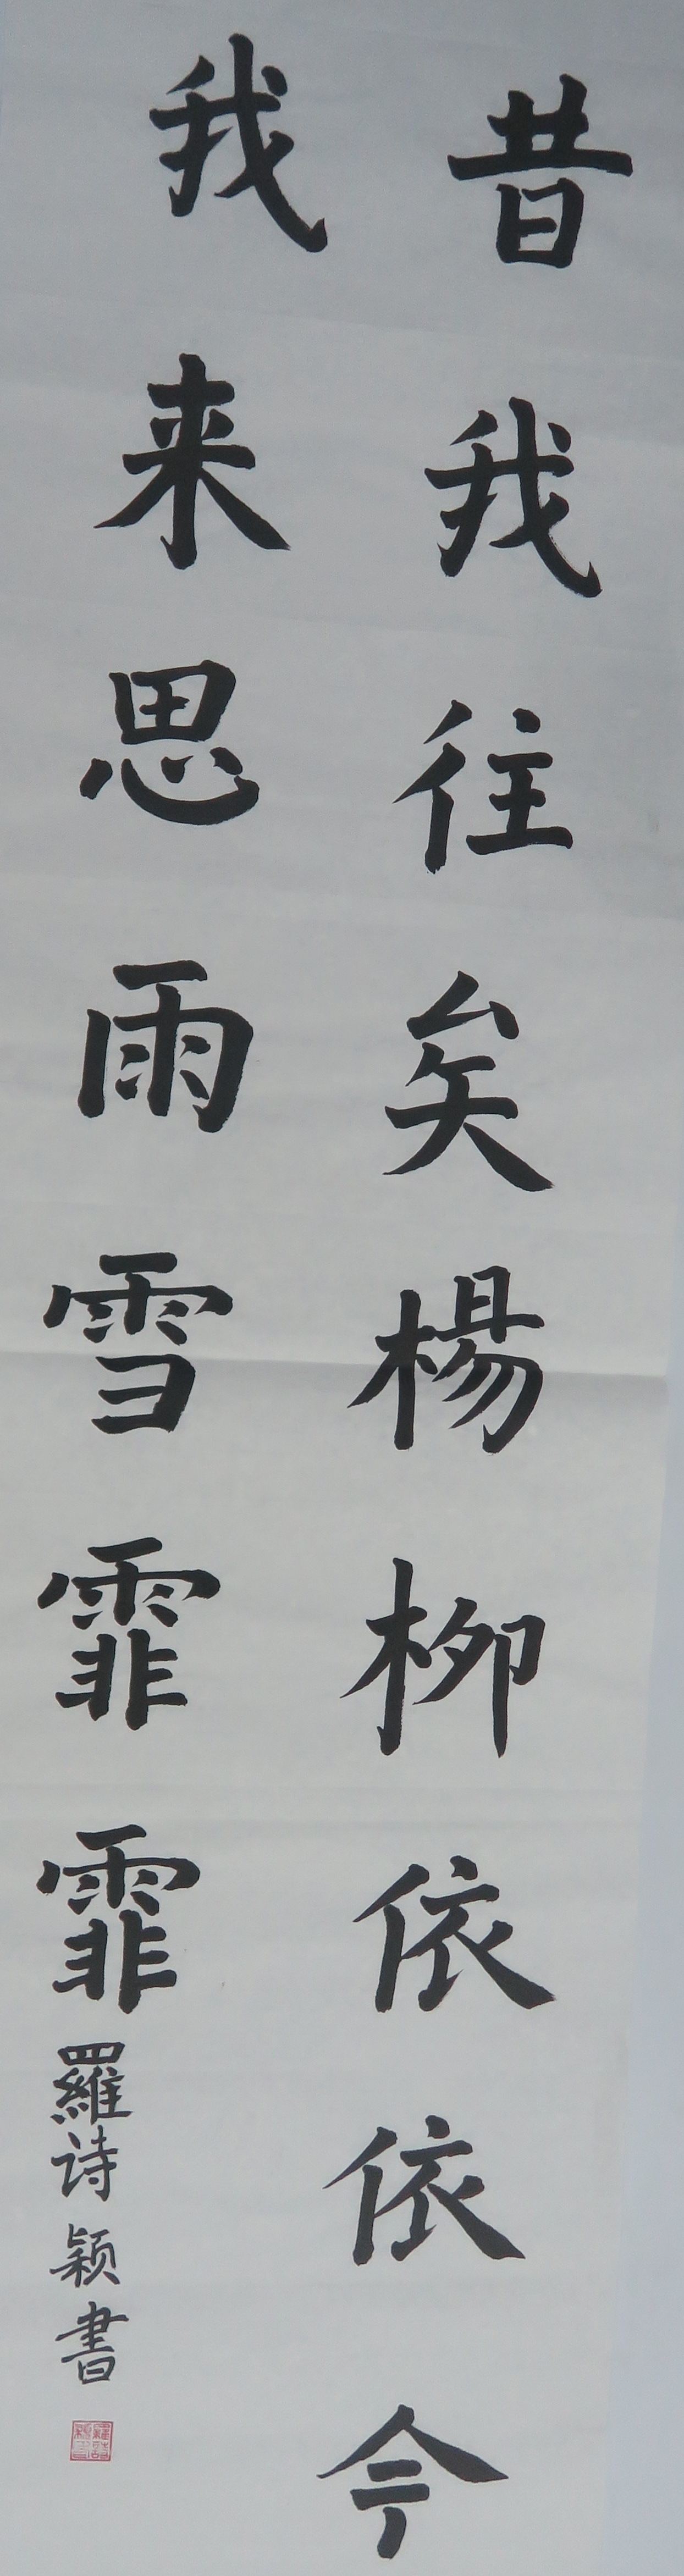 昔我往矣楊柳依依今
我来思雨雪霏霏
羅诗颖書